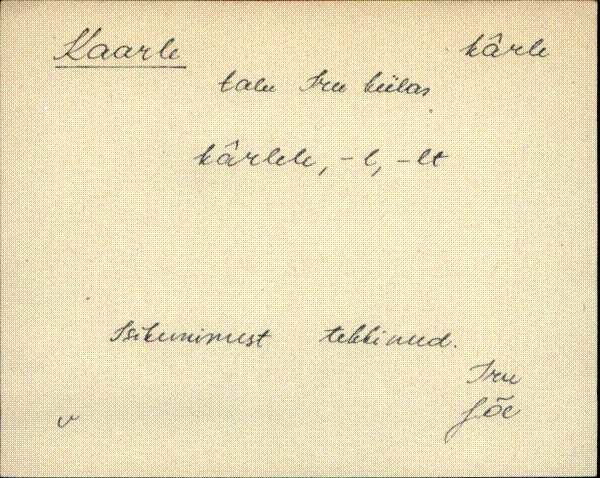 Kaarle kârle
talu Iru külas
kârlele, -l, -lt
Isikunimest tekkinud.
Iru
Jõe
v